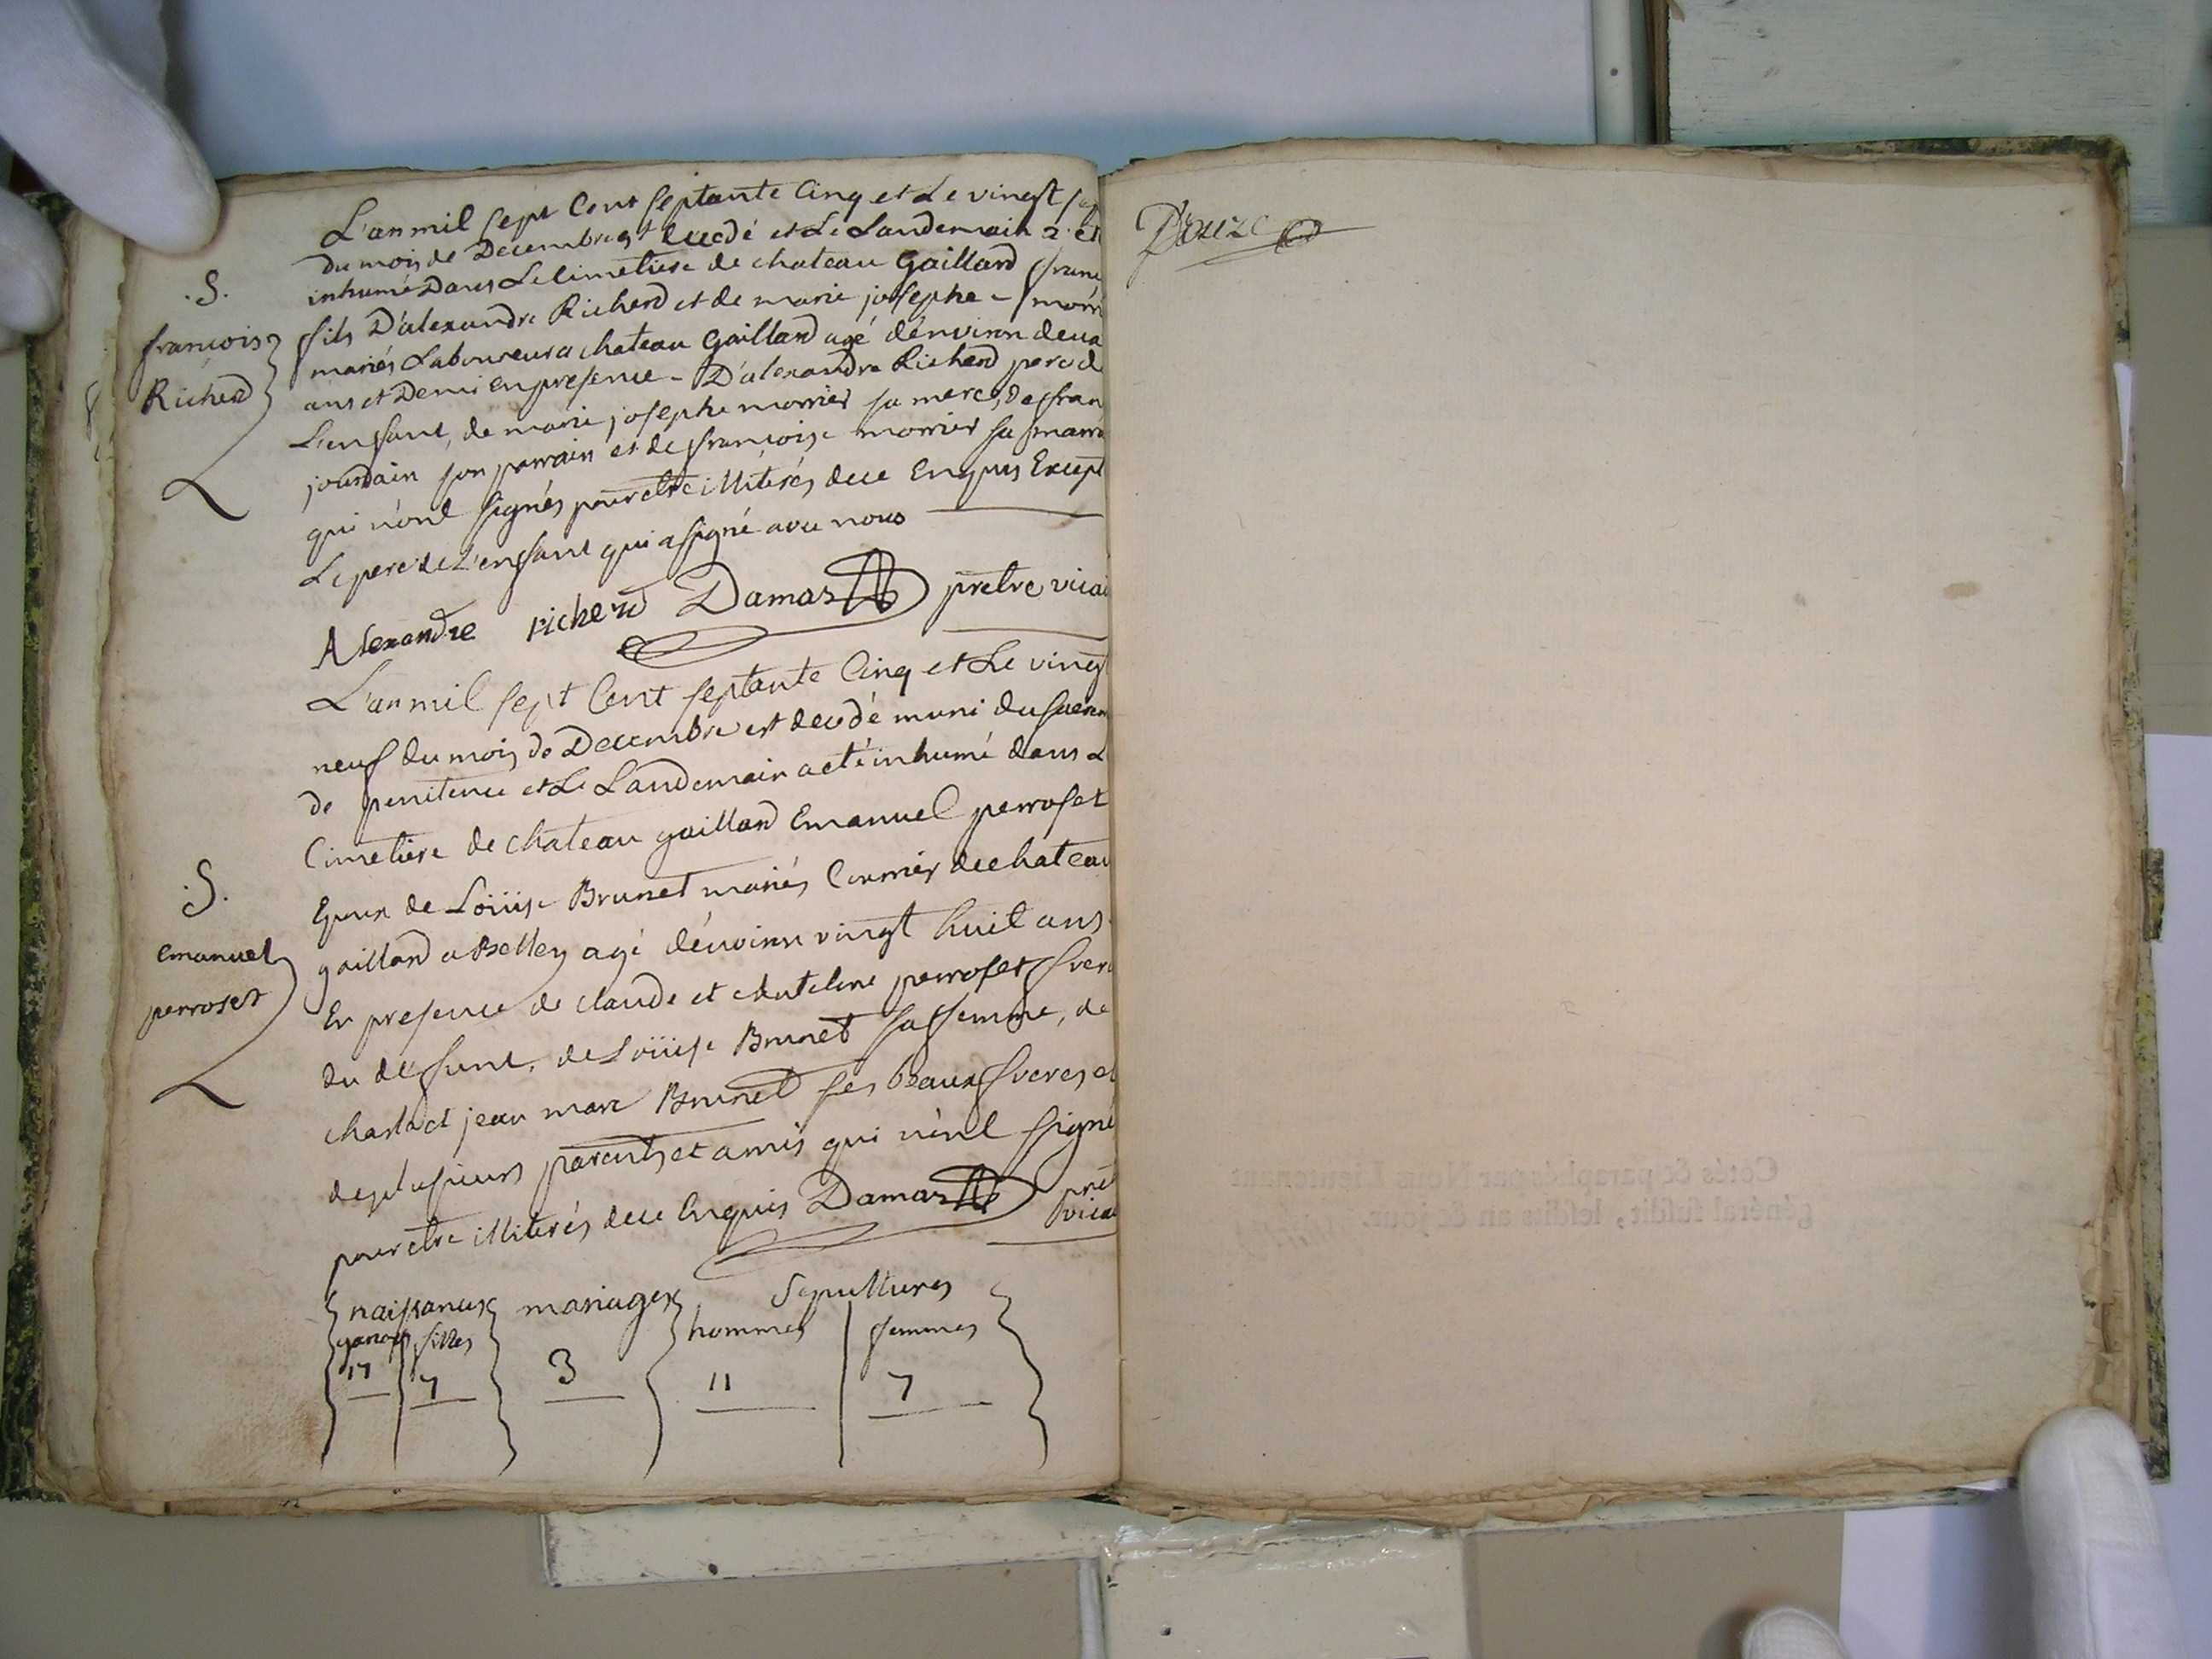 .S.
françois
Richerd
L'an mil sept Cent septante Cinq et Le vingt sep
du mois de Decembre est decedé et Le Landemain a été
inhumé Dans Le Cimetiere de chateau Gaillard franç
fils D'alexandre Richerd et de marie josephe - morri
mariés Laboureur a chateau Gaillard agé d'environ deux
ans et Demi en presence - D'alexandre Richerd pere de
L'enfant, de marie josephe morrier sa mere, de fran
jourdain son parrain et de françoise morrier sa marra
qui n'ont signés pour etre illiterés de ce Enquis Except
Le pere de L'enfant qui a signé avec nous
Alexandre richerd Damas pretre vicai
.S.
emanuel
perroset
L'an mil sept Cent septante Cinq et Le vingt
neuf du mois de Decembre est decedé muni du sacrem
de penitence et Le Landemain a eté inhumé dans L
Cimetiere de chateau gaillard Emanuel perroset
Epoux de Loüise Brunet mariés Courrier de chateau
gaillard a Belley agé d'environ vingt huit ans
En presence de claude et perroset frere
du defunt, de Loüise Brunet sa femme, de
charle et jean marc Brunet ses Beaux freres et
de plusieurs parents et amis qui n'ont signé
pour etre illiterés de ce Enquis Damas pret
vicai
naissances mariages Sepultures
garçons filles hommes femmes
17 7 3 11 7
Douze
Cotés & paraphés par Nous Lieutenant
général susdit, lesdits an & jour.